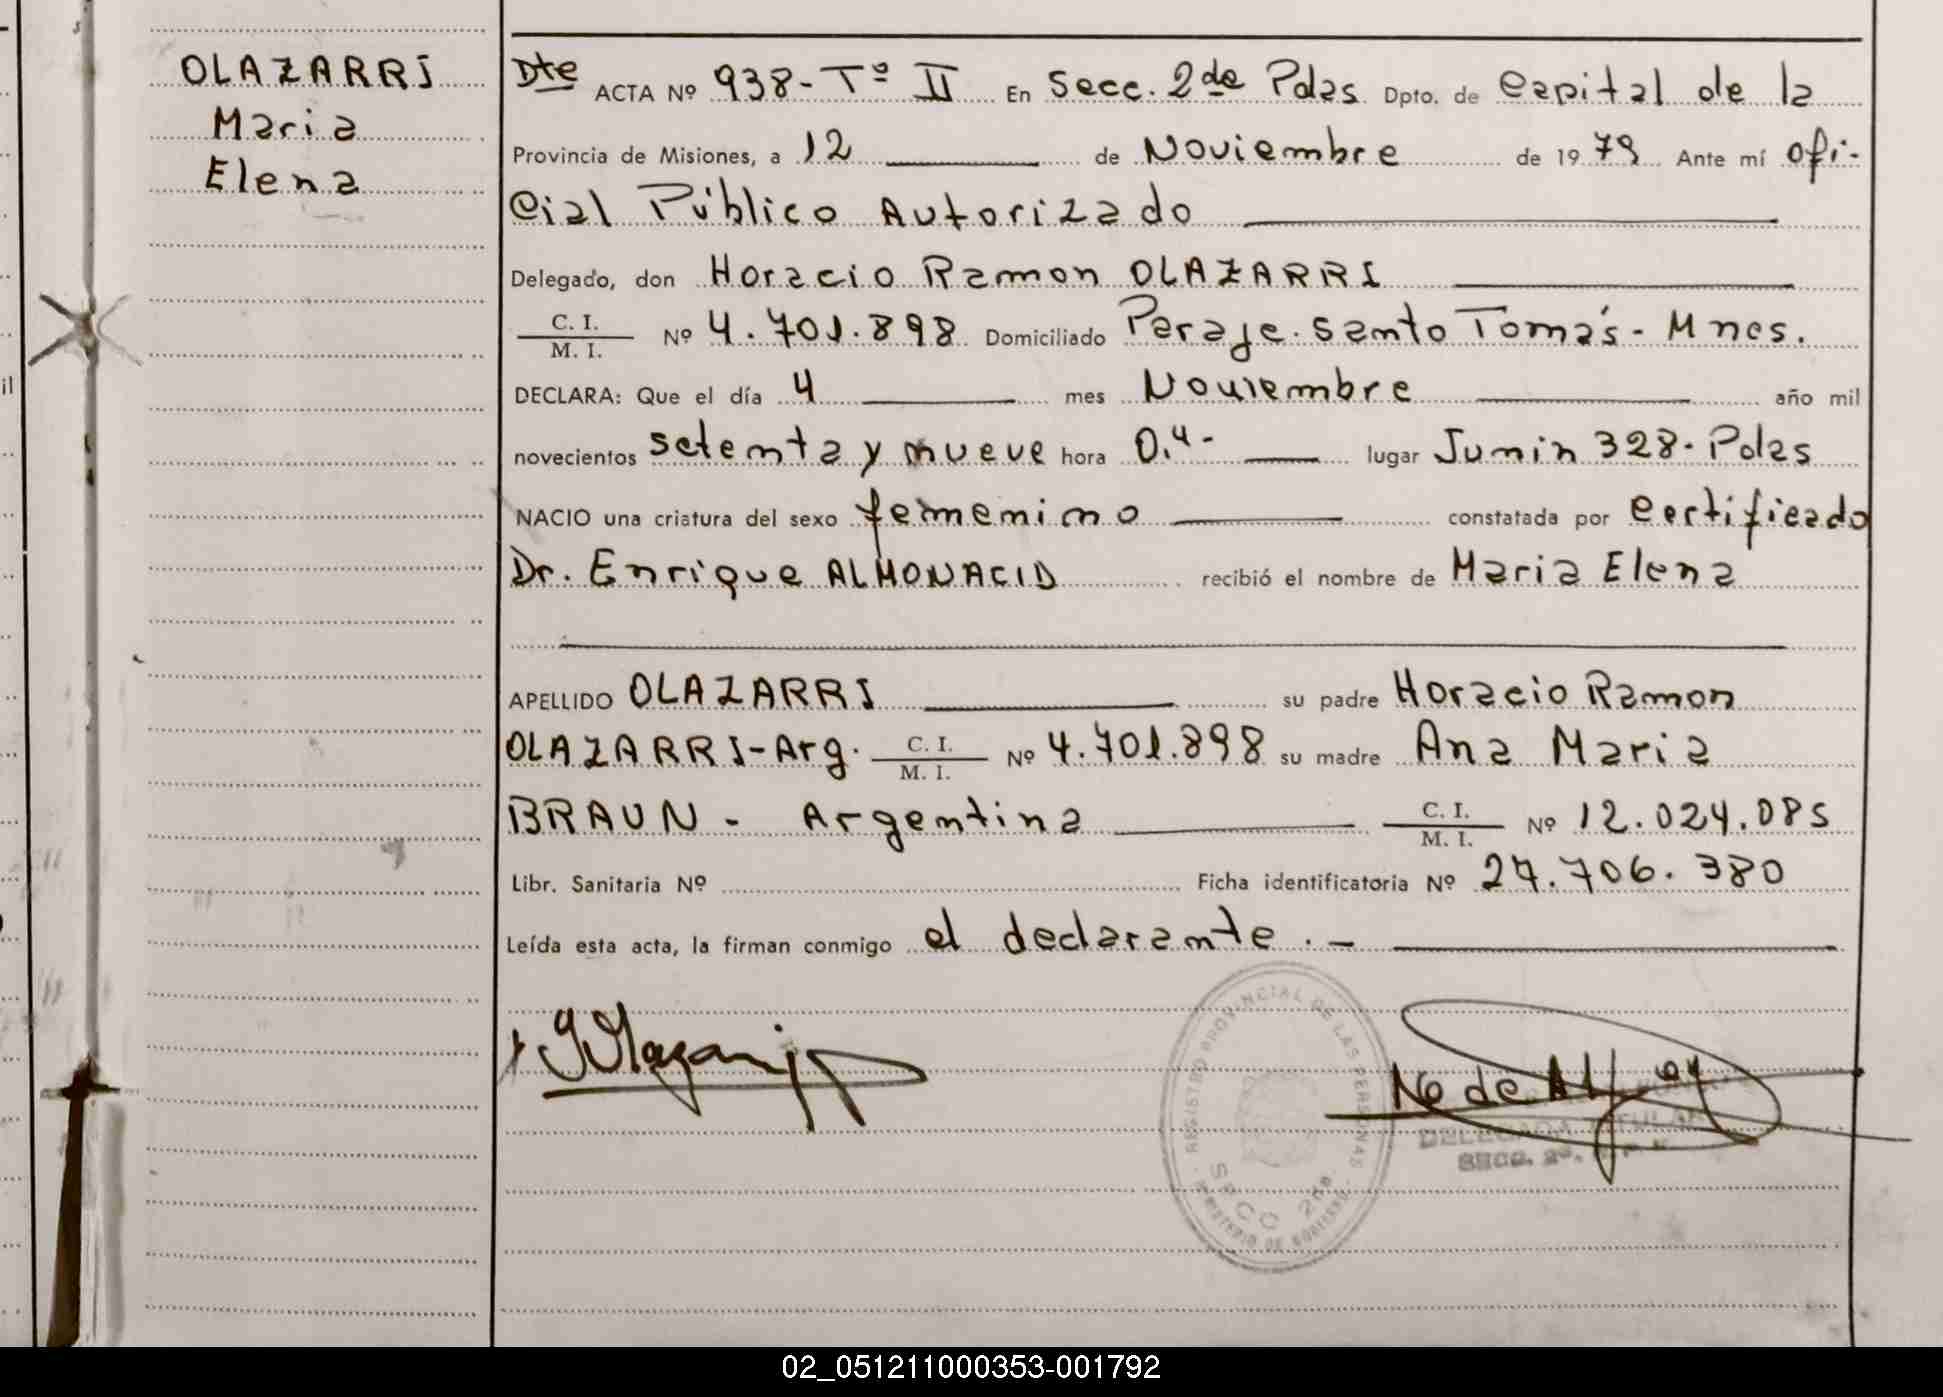 OLAZARRI
Maria
Elena
Dte ACTA Nº 938-Tº II En Secc. 2da Pdas Dpto. de Capital de la
Provincia de Misiones, a 12 de Noviembre de 1979 Ante mí ofi-
cial Público Autorizado
Delegado, don Horacio Ramon OLAZARRI
C. I.
M. I. Nº 4.701.898 Domiciliado Paraje Santo Tomás - Mnes.
DECLARA: Que el día 4 mes Noviembre año mil
novecientos setenta y nueve hora 0.4- lugar Junin 328-Pdas
NACIO una criatura del sexo femenino constatada por certificado
Dr. Enrique ALMONACID recibió el nombre de Maria Elena
APELLIDO OLAZARRI su padre Horacio Ramon
OLAZARRI-Arg. C. I. M. I. Nº 4.701.898 su madre Ana Maria
BRAUN - Argentina C. I. M. I. Nº 12.024.085
Libr. Sanitaria Nº Ficha identificatoria Nº 27.706.380
Leída esta acta, la firman conmigo el declarante.-
REGISTRO PROVINCIAL DE LAS PERSONAS
SECC 2da.
MINISTERIO DE GOBIERNO
DELEGADA TITULAR
SECC. 2da.
02_051211000353-001792